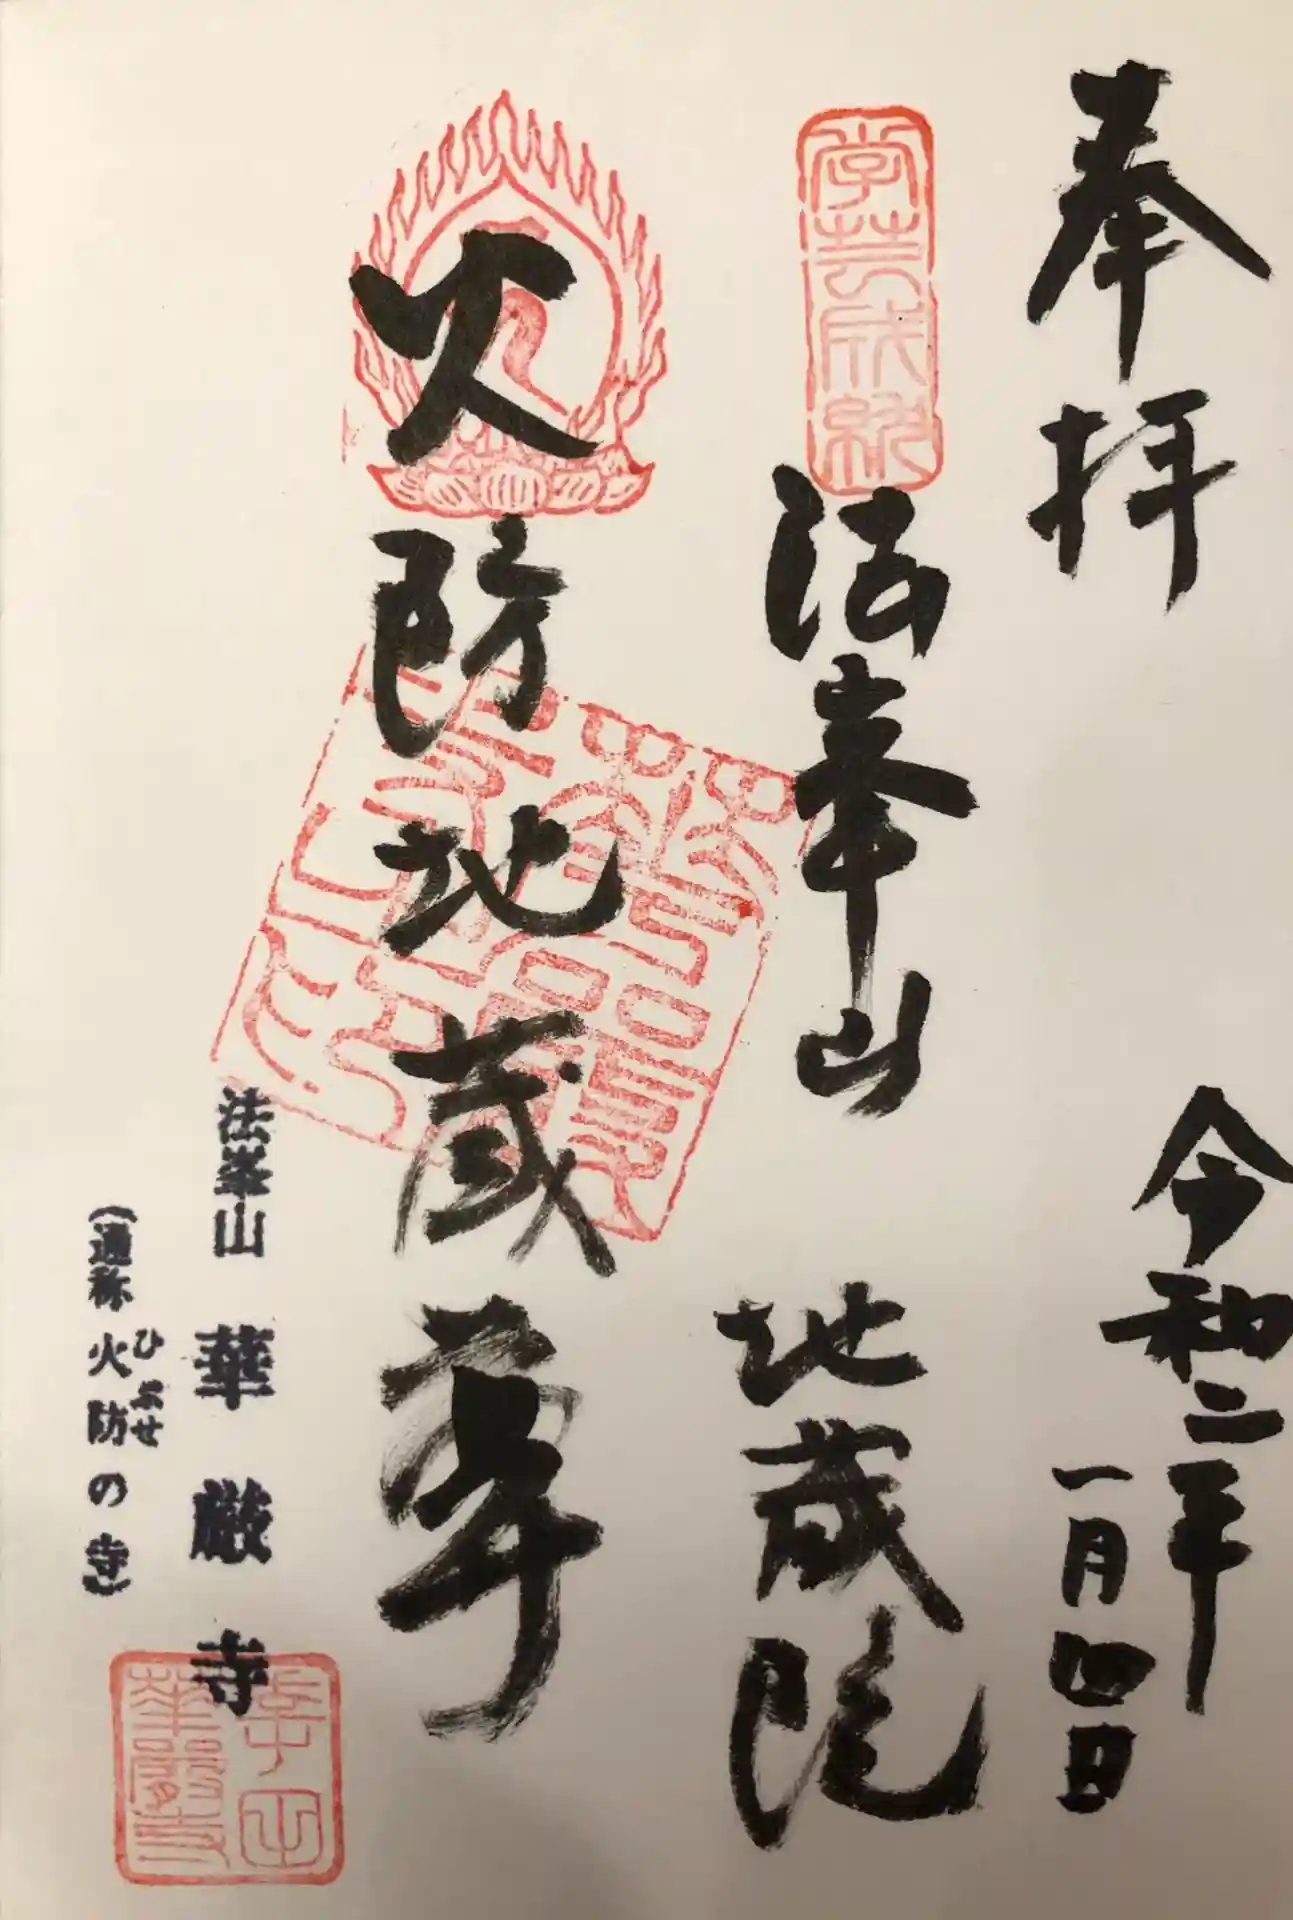 奉拝
令和二年
一月四日
学芸成就
法峯山
地蔵院
火防地蔵尊
法峯山 華厳寺
(通称 火防の寺)
ひぶせ